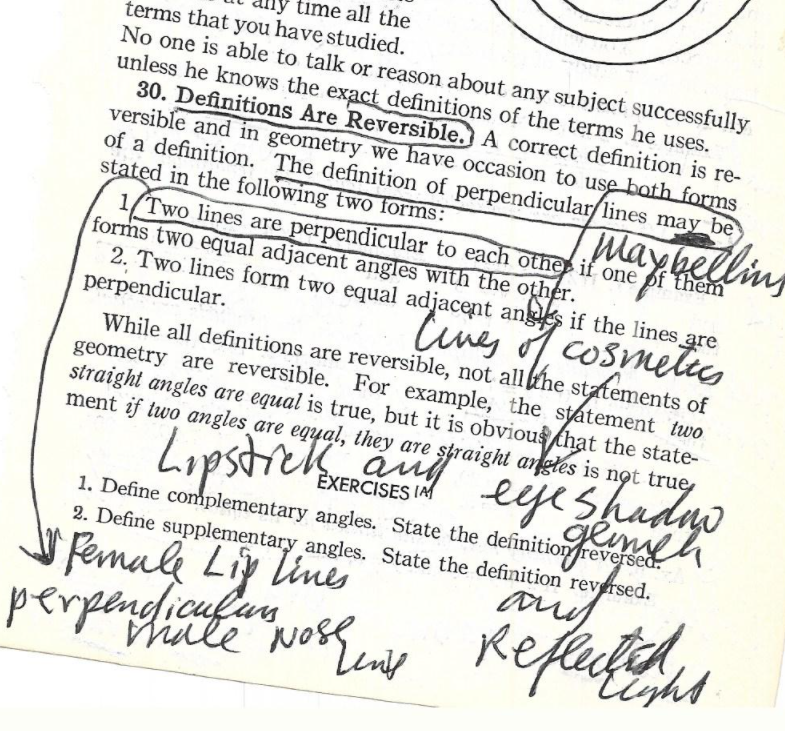 any time all the
terms that you have studied.
No one is able to talk or reason about any subject successfully
unless he knows the exact definitions of the terms he uses.
30. Definitions Are Reversible. A correct definition is re-
versible and in geometry we have occasion to use both forms
of a definition. The definition of perpendicular lines may be
stated in the following two forms:
1. Two lines are perpendicular to each other if one of them
forms two equal adjacent angles with the other.
Maybelline
2. Two lines form two equal adjacent angles if the lines are
perpendicular.
Lines of cosmetics
While all definitions are reversible, not all the statements of
geometry are reversible. For example, the statement two
straight angles are equal is true, but it is obvious that the state-
ment if two angles are equal, they are straight angles is not true.
Lipstick and
eye shadow
EXERCISES
1. Define complementary angles. State the definition reversed.
2. Define supplementary angles. State the definition reversed.
Female Lip lines
perpendiculars
male Nose
Line
and
Reflected
Light